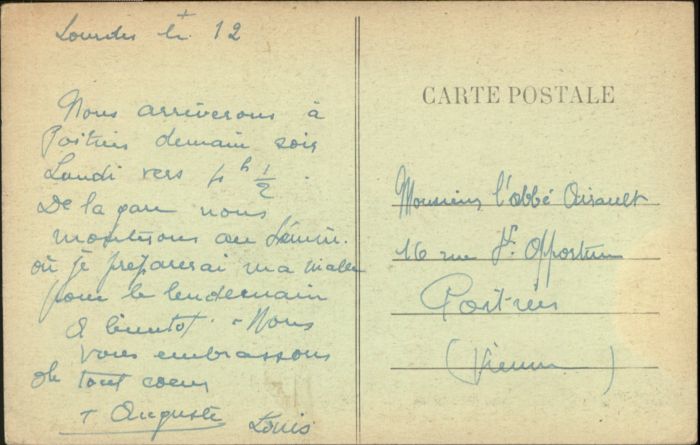 Lourdes le 12
Nous arriverons à
Poitiers demain soir
Lundi vers 4 h 1/2.
De la gare nous
monterons au Sémin.
où je préparerai ma malle
pour le lendemain
A bientôt. - Nous
vous embrassons
de tout coeur
+ Auguste Louis
CARTE POSTALE
Monsieur l'abbé Airault
16 rue Ste Opportune
Poitiers
(Vienne)